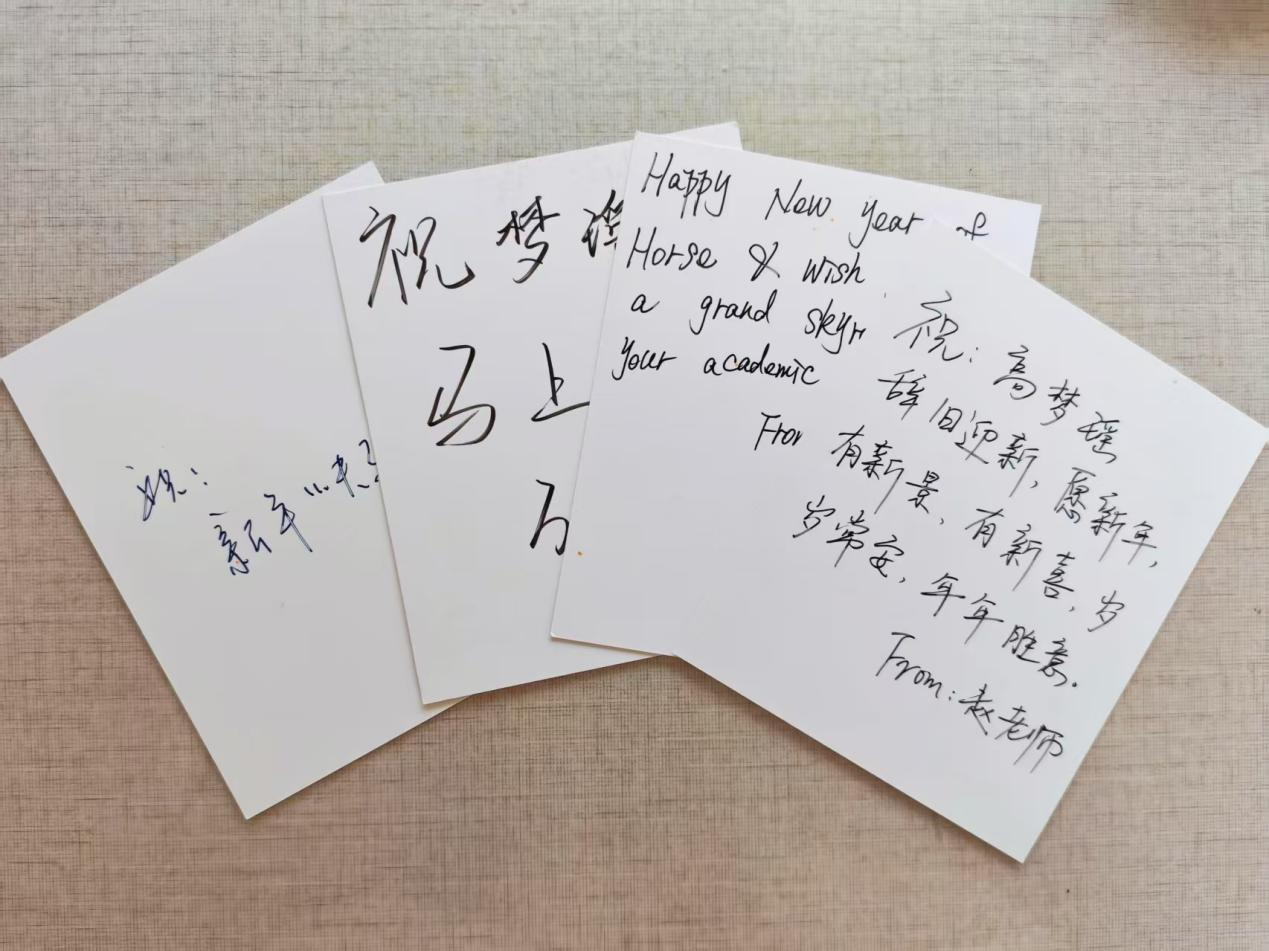 祝:
新年"来
祝梦瑶
马上
万
Happy New year of
Horse & wish
a grand sky
your academic
From
祝:高梦瑶
辞旧迎新,愿新年,
有新景,有新喜,岁
岁常安,年年胜意.
From:赵老师